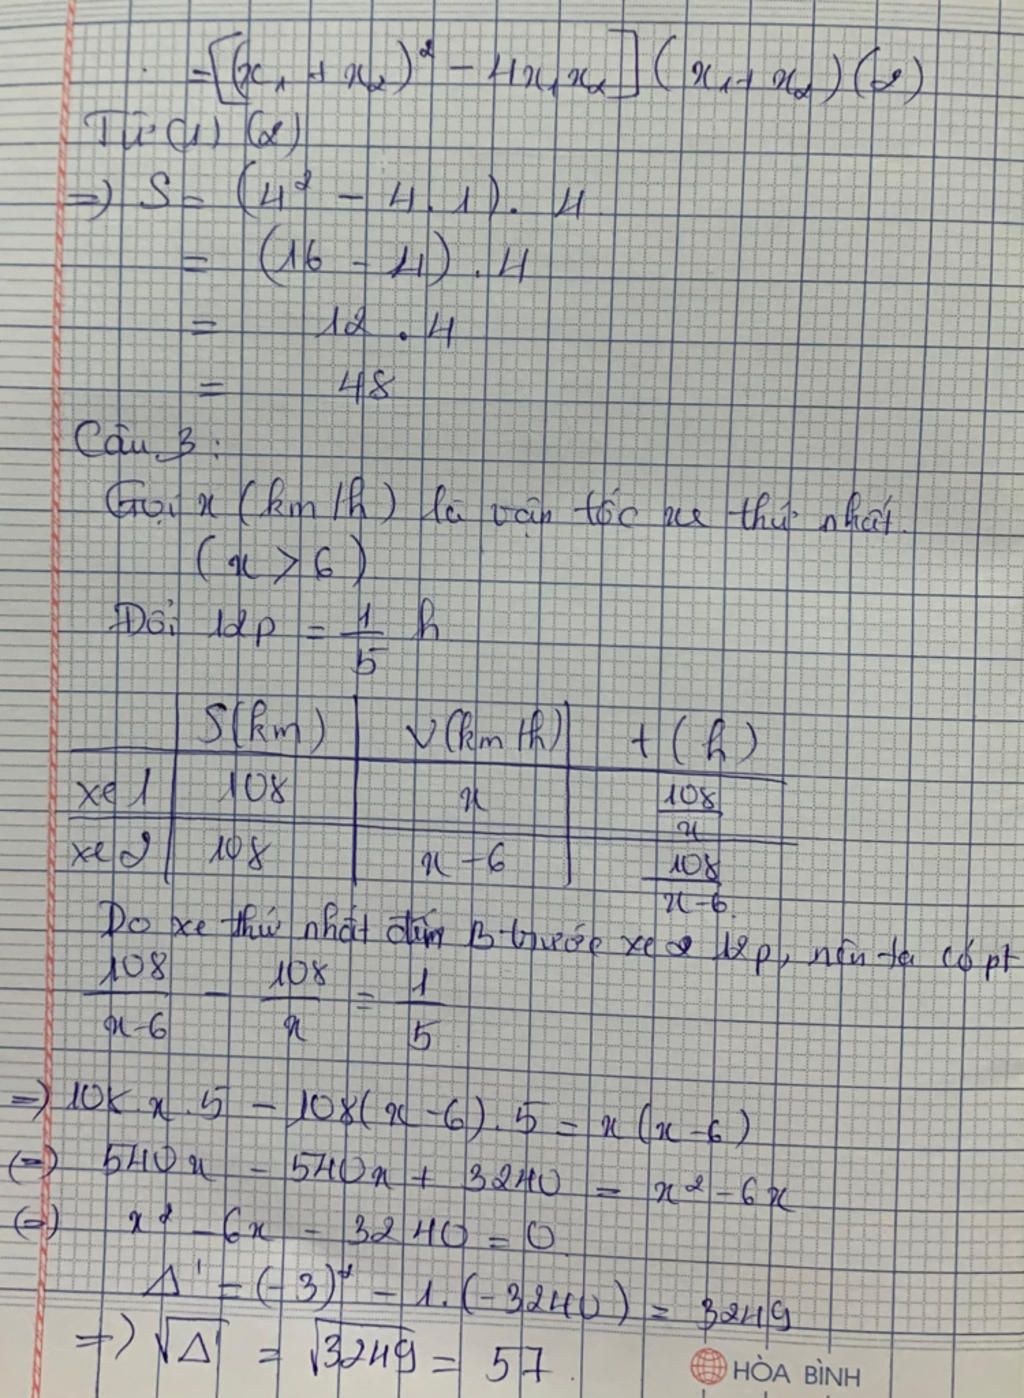 = [(x₁ + x₂)² - 4x₁x₂] (x₁ + x₂) (2)
Từ (1) (2)
=) S = (4² - 4.1). 4
= (16 - 4) . 4
= 12 . 4
= 48
Câu 3:
Gọi x (km/h) là vận tốc xe thứ nhất.
(x > 6)
Đổi 12p = 1/5 h
S(km) V(km/h) t(h)
xe 1 108 x 108/x
xe 2 108 x - 6 108/(x-6)
Do xe thứ nhất đến B trước xe 2 12p, nên ta có pt
108/(x-6) - 108/x = 1/5
=) 108.x.5 - 108(x-6).5 = x(x-6)
(=) 540x - 540x + 3240 = x² - 6x
(=) x² - 6x - 3240 = 0
Δ' = (-3)² - 1.(-3240) = 3249
=) √Δ' = √3249 = 57.
HÒA BÌNH